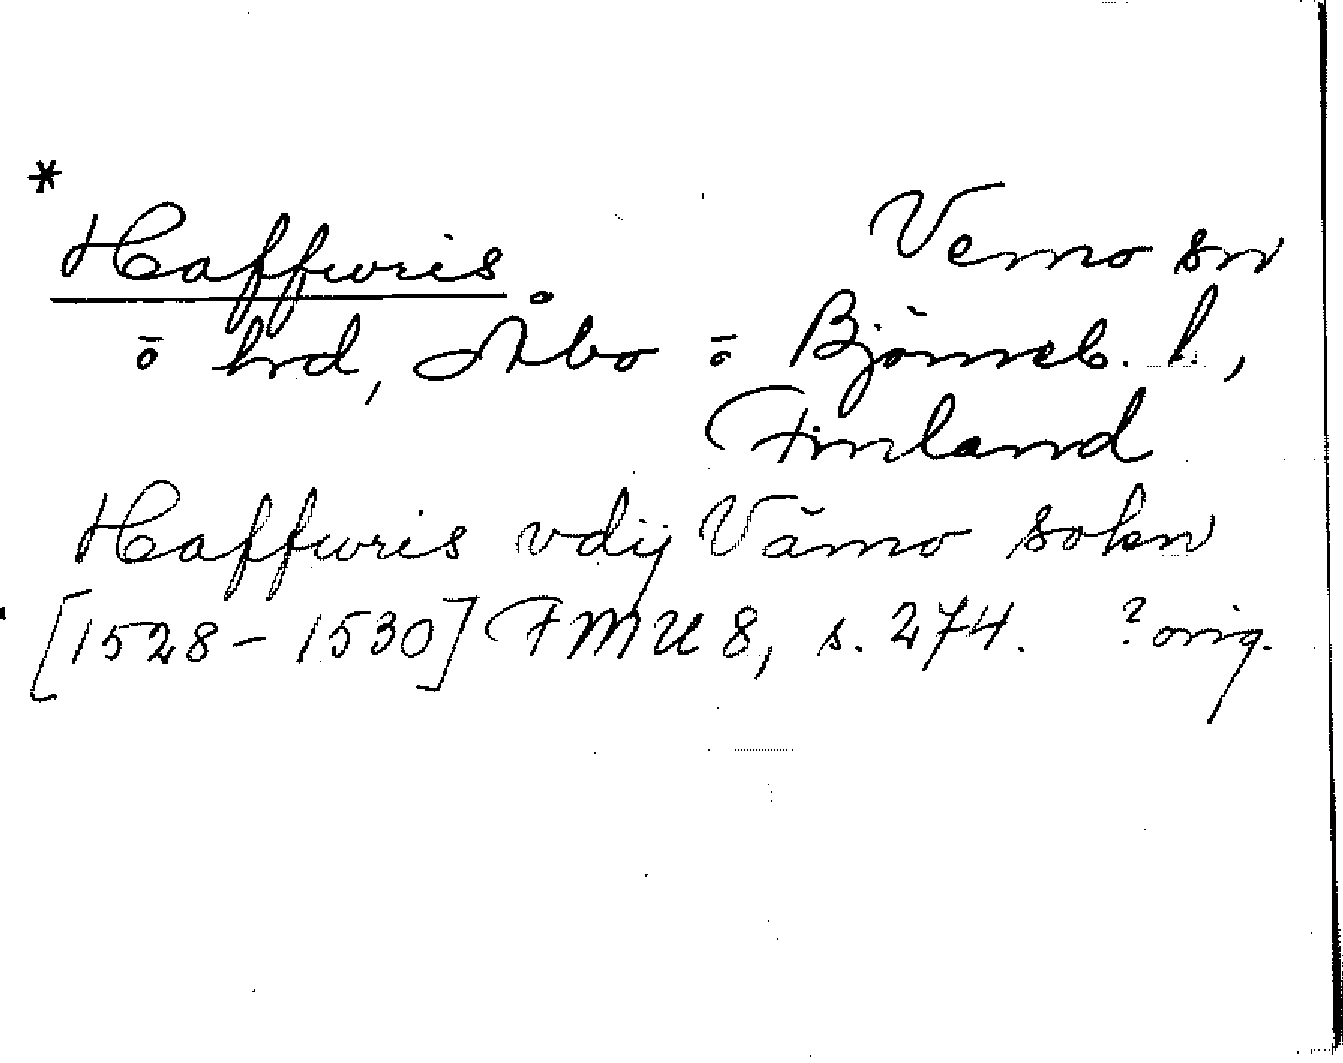 *
Haffwris Vemo sn
ō hrd, Åbo ō Björneb. l,
Finland
Haffwris vdij Vämo sokn
[1528-1530] FMU 8, s. 274. ? orig.